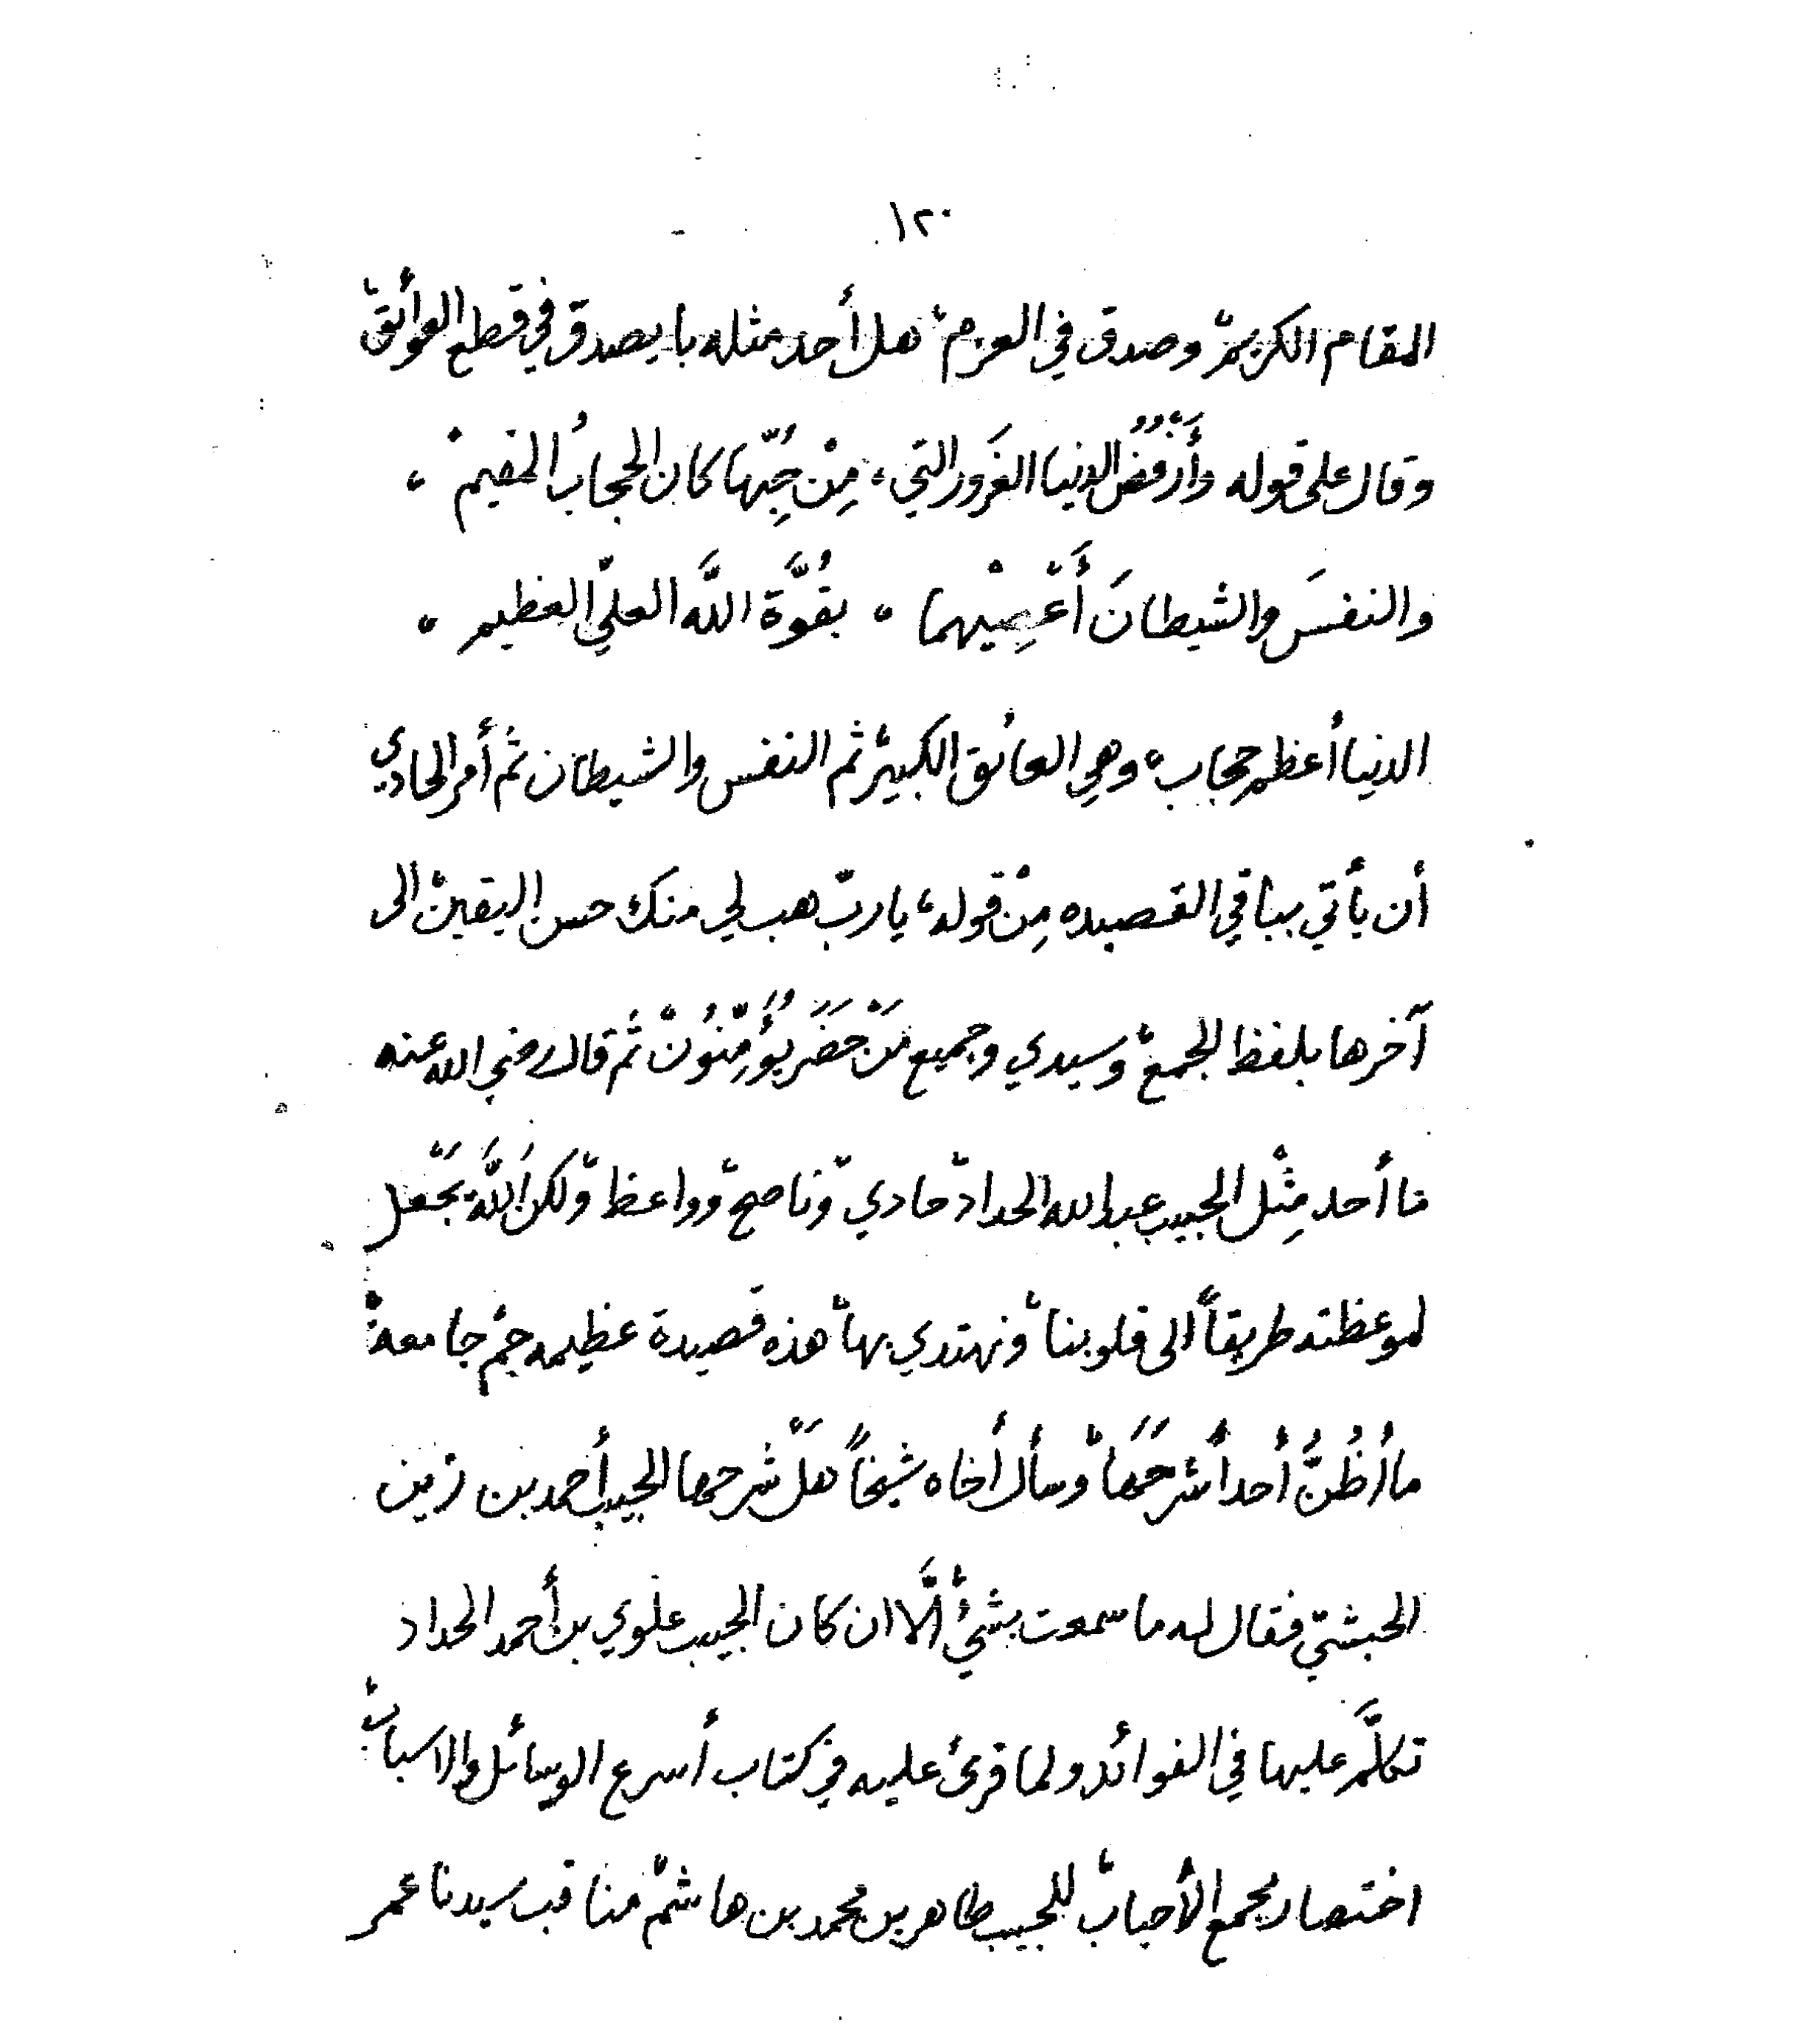 ١٢٠
المقام الكريم، وصدق في العزم، هل أحد مثله با يصدق في قطع العوائق،
وقال على قوله وَأَرْفُضُ الدنيا الغَرور التي، مِنْ حُبِّها كان الحجابُ المقيمْ،
والنفسَ والشيطانَ أَعْصِيْهما ، بقُوَّة اللَّه العليّ العظيم ،
الدنيا أعظم حجاب، وهي العائق الكبير، ثم النفس والشيطان ثم أمر الحادي
أن يأتي بباقي القصيده مِنْ قوله، يا ربّ هب لي منك حسن اليقين، الى
آخرها بلفظ الجمع، وسيدي وجميع مَنْ حَضَرَ يُؤَمِّنُونْ ثم قال رضي الله عنه
ما أحد مِثْل الحبيب عبدالله الحداد، حادي، وناصح، وواعظ، ولكن اللَّه يَجْعل
لموعظته طريقاً الى قلوبنا، ونهتدي بها، هذه قصيدة عظيمه جم جامعة،
ما أظُنُّ أحداً شَرَحَها، وسأل أخاه شيخاً هَلْ شرحها الحبيب أحمد بن زين
الحبشي، فقال له ما سمعت بشيءْ الَّا ان كان الحبيب علوي بن أحمد الحداد
تكلَّم عليها في الفوائد ولما قرئ عليه في كتاب أسرع الوسائل والاسباب،
اختصار مجمع الأحباب، للحبيب طاهر بن محمد بن هاشم، مناقب سيدنا عمر